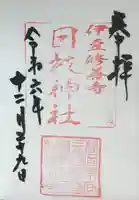 奉拝
伊豆修善寺
日枝神社
令和六年
十二月二十九日